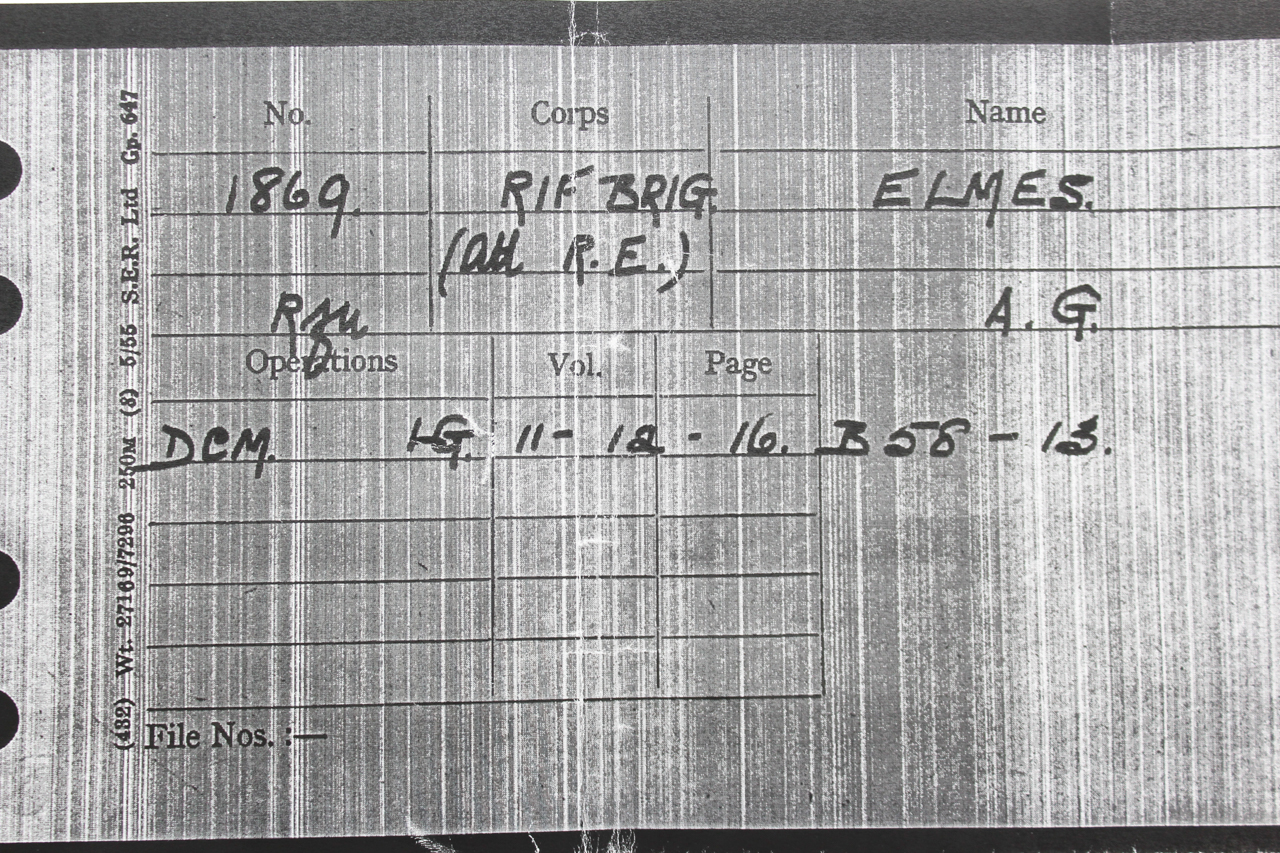 No. Corps Name
1869. RIF BRIG. ELMES.
(att R.E.)
Rfn A. G.
Operations Vol. Page
DCM. LG. 11 - 12 - 16. B 58 - 13.
File Nos. :—
(432) Wt. 27169/7296 250M (8) 5/55 S.E.R. Ltd Gp. 647